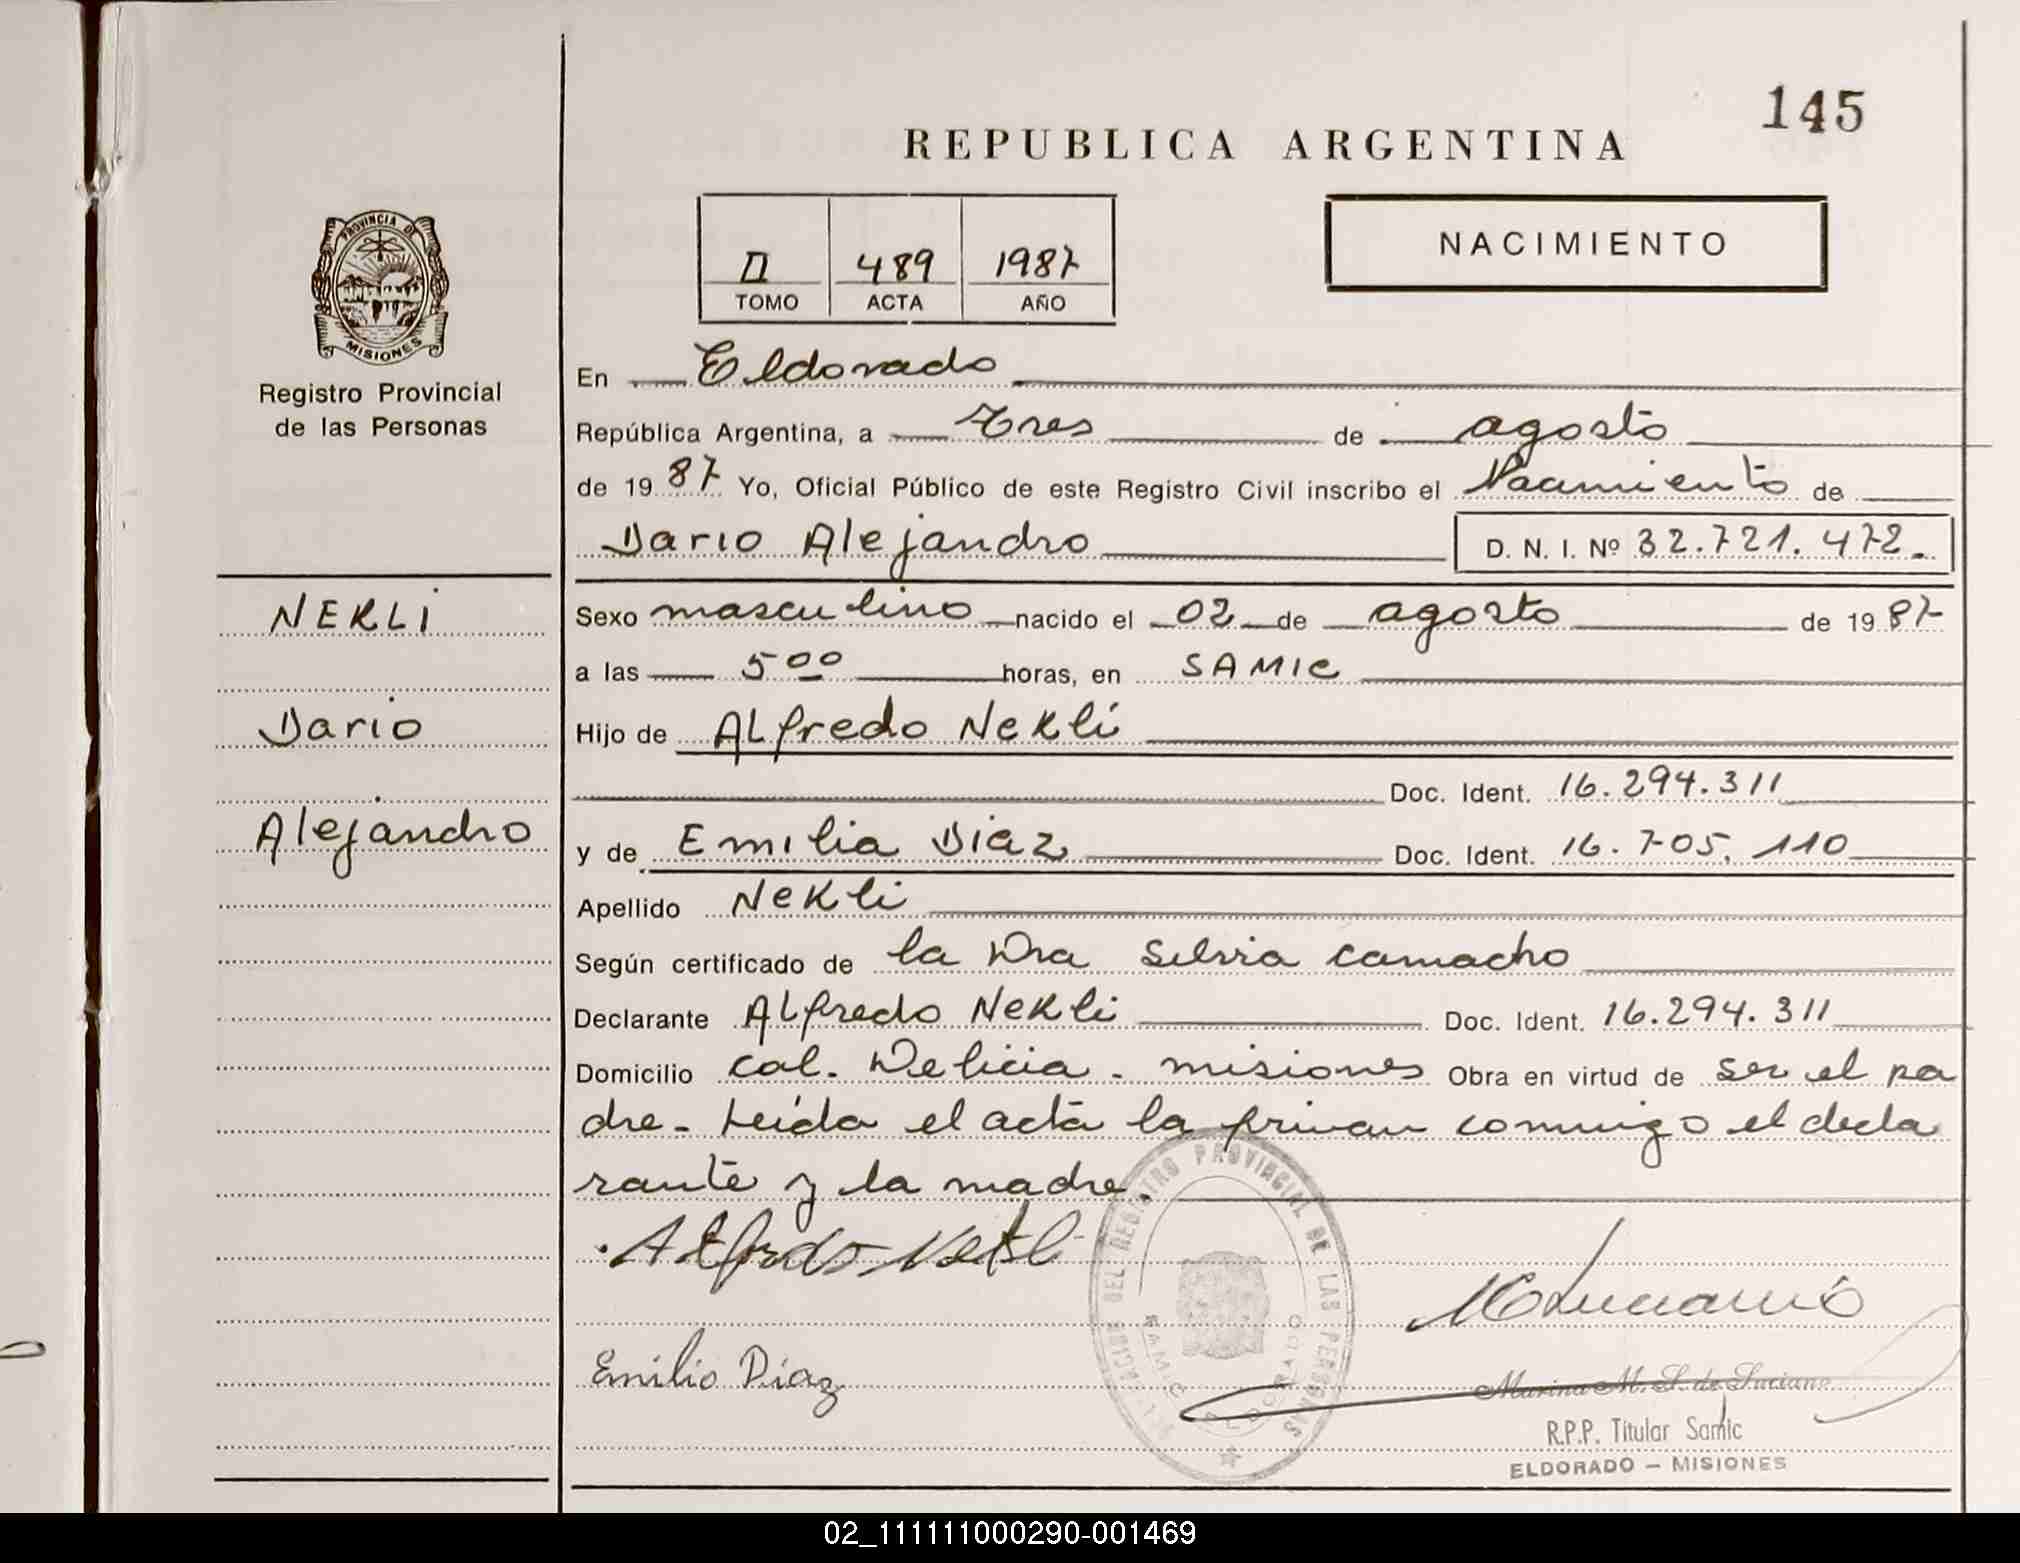 145
REPUBLICA ARGENTINA
PROVINCIA DE
MISIONES
Registro Provincial
de las Personas
II 489 1987
TOMO ACTA AÑO
NACIMIENTO
En Eldorado
República Argentina, a Tres de agosto
de 1987 Yo, Oficial Público de este Registro Civil inscribo el Nacimiento de
Dario Alejandro D. N. I. Nº 32.721.472.
NEKLI
Dario
Alejandro
Sexo masculino nacido el 02 de agosto de 1987
a las 5 00 horas, en SAMIC
Hijo de ALfredo Nekli
Doc. Ident. 16.294.311
y de Emilia Diaz Doc. Ident. 16.705.110
Apellido Nekli
Según certificado de la Dra Silvia Camacho
Declarante ALfredo Nekli Doc. Ident. 16.294.311
Domicilio Col. Delicia - misiones Obra en virtud de ser el pa
dre - Leída el acta la firman conmigo el decla
rante y la madre.
Alfredo Nekli
Emilio Díaz
DEL REGISTRO PROVINCIAL DE LAS PERSONAS
SAMIC ELDORADO
Marina M. S. de Luciano
R.P.P. Titular Samic
ELDORADO - MISIONES
02_111111000290-001469